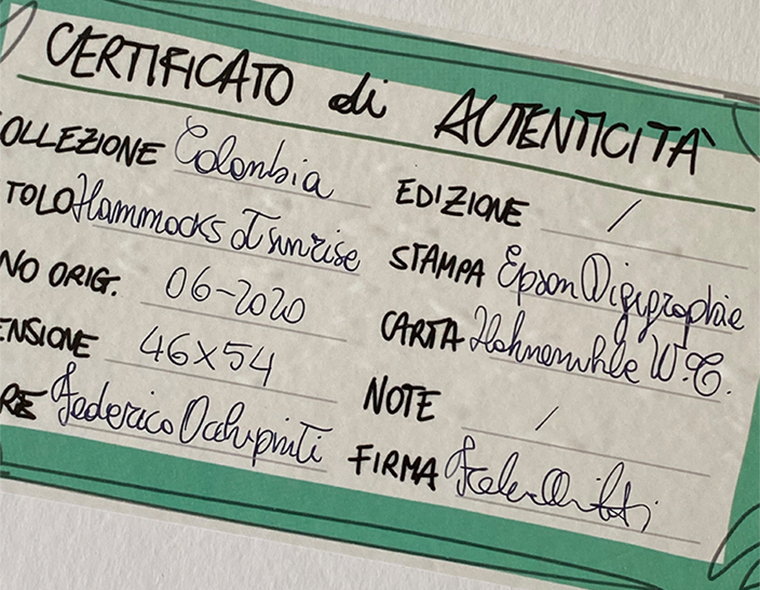 CERTIFICATO di AUTENTICITÀ
OLLEZIONE Colombia
TOLO Hammocks at sunrise
NO ORIG. 06-2020
ENSIONE 46x54
RE Federico
EDIZIONE /
STAMPA Epson Digigraphie
CARTA Hahnemuhle W.C.
NOTE /
FIRMA